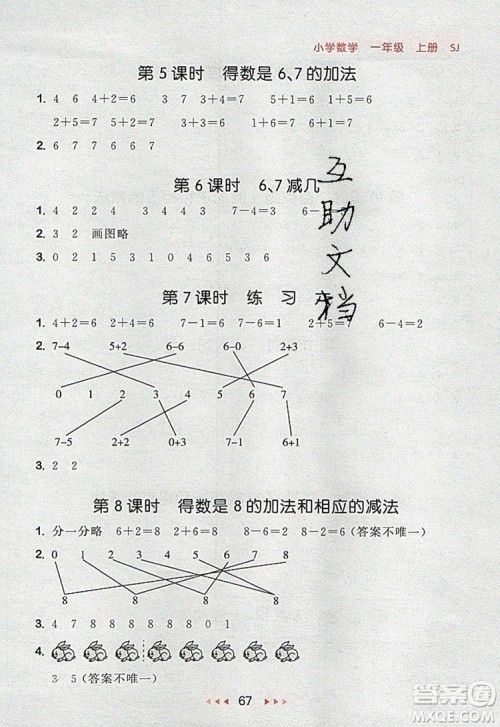 小学数学 一年级 上册 SJ
第 5 课时 得数是 6、7 的加法
1. 4 6 4+2=6 3 7 3+4=7 4+3=7
2+5=7 5+2=7 3+3=6 6+1=7 1+6=7
2. 6 7 7 6 6 7
第 6 课时 6、7 减几
1. 4 2 2 4 3 4 4 3 7-4=3 6-
2. 3 2 画图略
3. 0 1 2 3 1 5 3 1 0 4 6 5 3 6
第 7 课时 练 习
1. 4+2=6 5+2=7 7-1=6 7-6=1 2+5=7 6-4=2
2. 7-4 5+2 6-6 6-0 2+3
0 1 2 3 4 5 6 7
7-5 2+2 0+3 6-5 7-0
3. 2 2
第 8 课时 得数是 8 的加法和相应的减法
1. 分一分略 6+2=8 8-6=2 8-2=6(答案不唯一)
2. 0 1 2 3 4 5 6 7 8
8 8 8 8 8
3. 4 7 8 8 8 8 8 8 0 1
4.
3 5(答案不唯一)
67
互助文档
作业帮
MXQE.COM